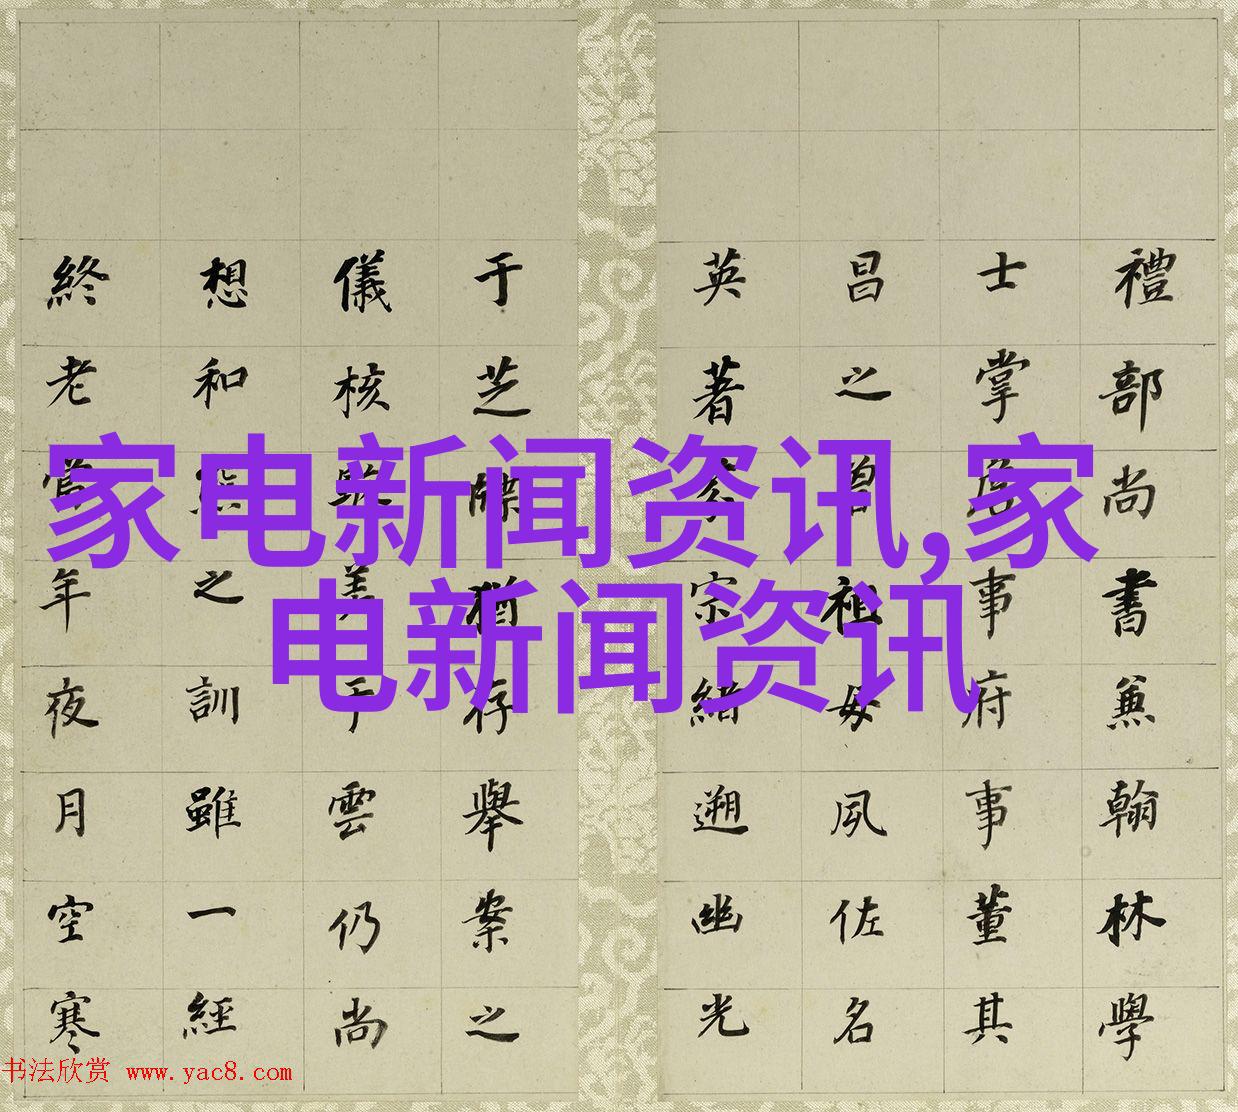 禮部尚書兼翰林學
士掌詹事府事董其
昌之曾祖母夙佐名
英著宗緒遡幽光
于芝牒猶存舉案之
儀核美于雲仍尚
想和熊之訓雖一經
終老年夜月空寒
家电新闻资讯,家
电新闻资讯
书法欣赏 www.yac8.com